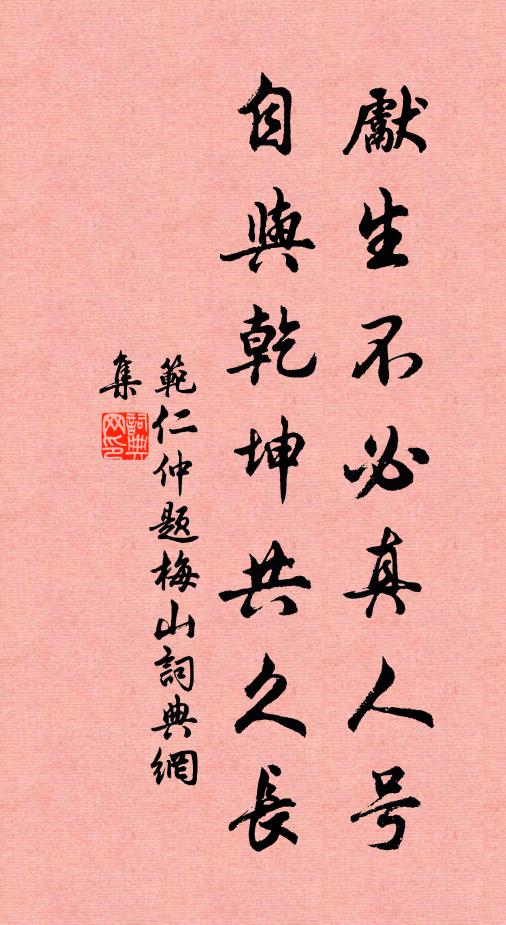 獻生不必真人号
自與乾坤共久長
範仁仲题梅山詞典網
集
詞典网印